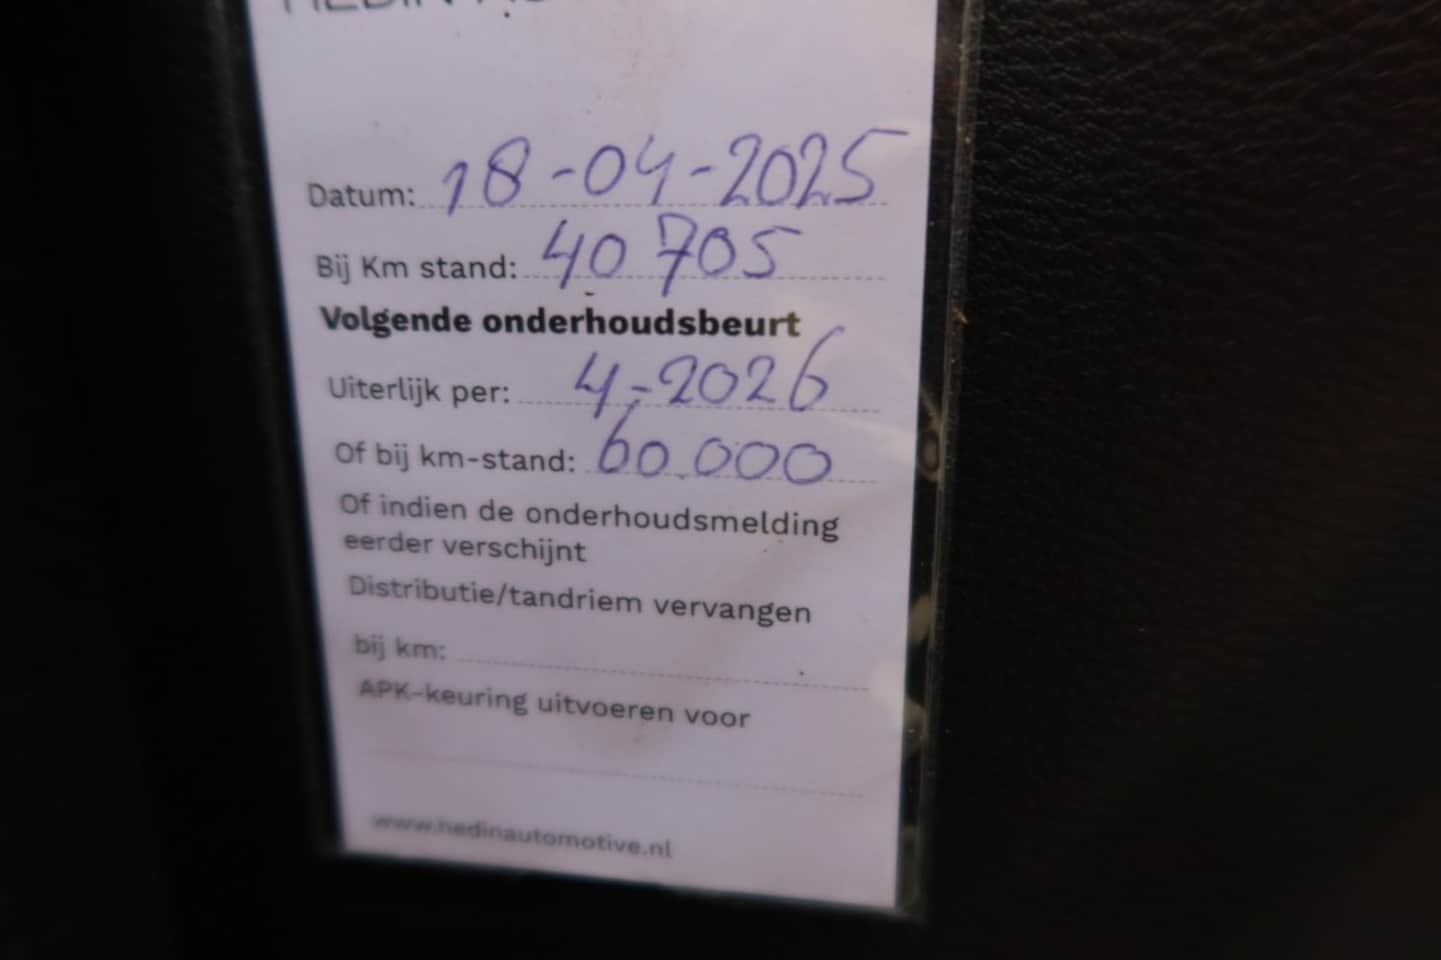 Datum: 18-04-2025
Bij Km stand: 40 705
Volgende onderhoudsbeurt
Uiterlijk per: 4-2026
Of bij km-stand: 60.000
Of indien de onderhoudsmelding
eerder verschijnt
Distributie/tandriem vervangen
bij km:
APK-keuring uitvoeren voor
www.hedinautomotive.nl